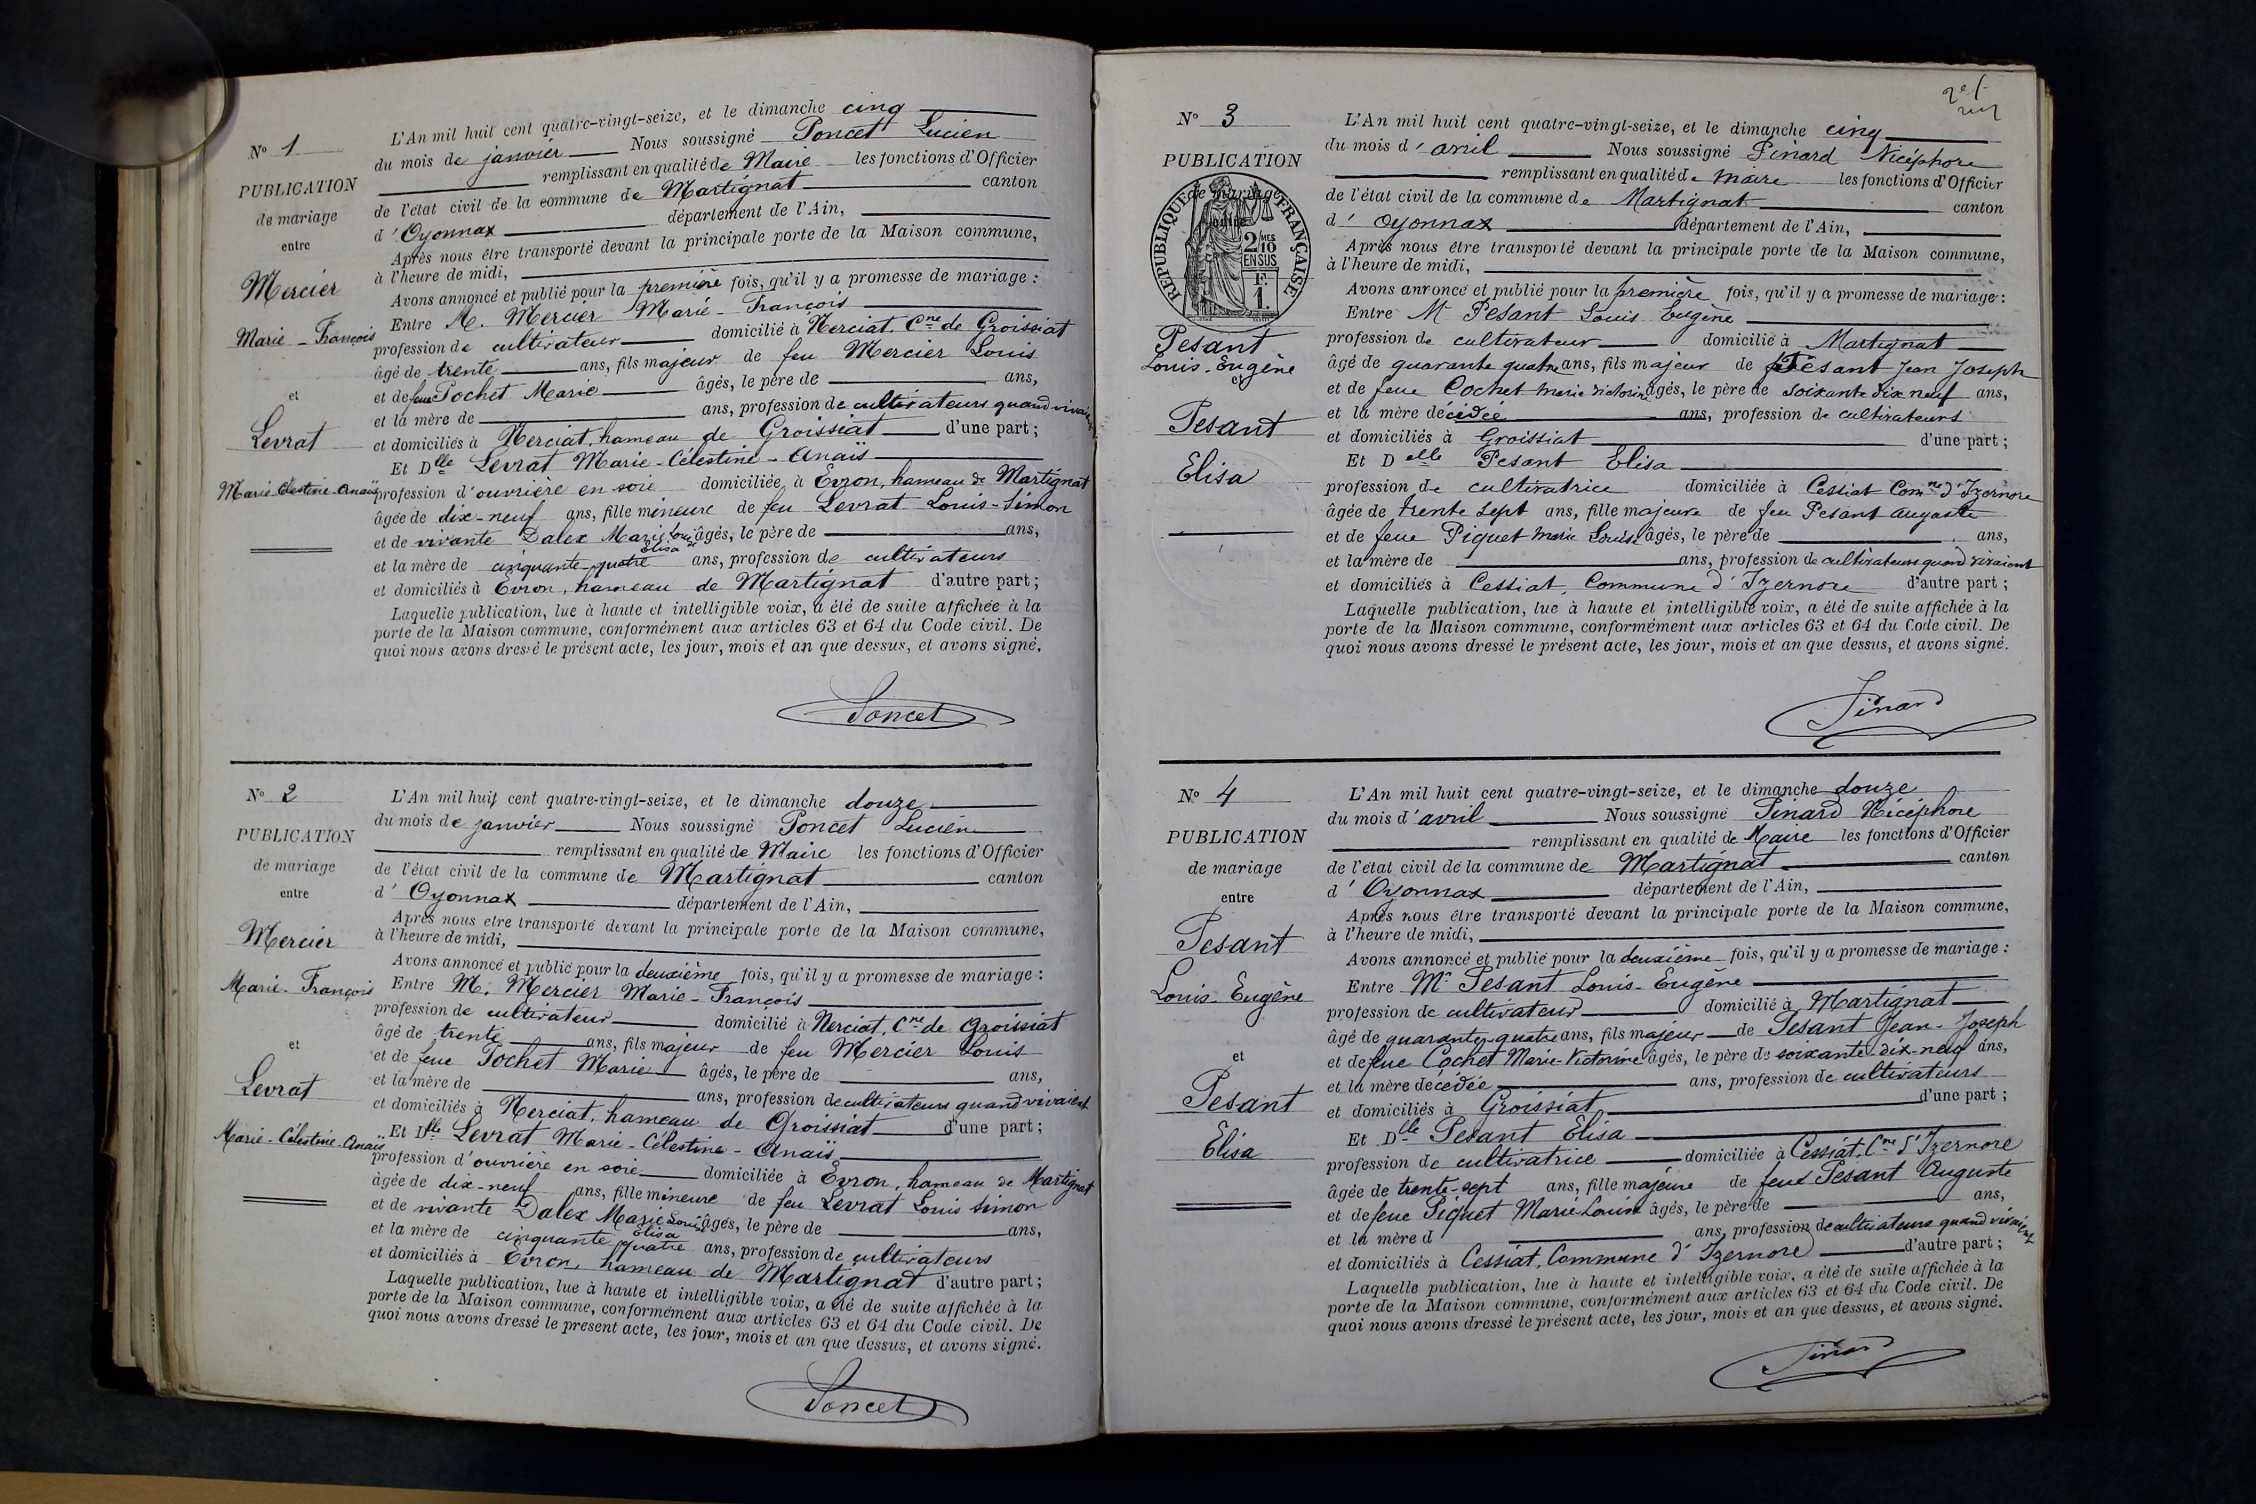 N° 1
PUBLICATION
de mariage
entre
Mercier
Marie-François
et
Levrat
Marie-Célestine-Anaïs
L'An mil huit cent quatre-vingt-seize, et le dimanche cinq
du mois de janvier Nous soussigné Poncet Lucien
remplissant en qualité de Maire les fonctions d'Officier
de l'état civil de la commune de Martignat canton
d'Oyonnax département de l'Ain,
Après nous être transporté devant la principale porte de la Maison commune,
à l'heure de midi,
Avons annoncé et publié pour la première fois, qu'il y a promesse de mariage :
Entre M. Mercier Marie-François
profession de cultivateur domicilié à Nerciat, Cne de Groissiat
âgé de trente ans, fils majeur de feu Mercier Louis
et de feue Pochet Marie âgés, le père de ans,
et la mère de ans, profession de cultivateurs quand vivaient
et domiciliés à Nerciat, hameau de Groissiat d'une part ;
Et Dlle Levrat Marie-Célestine-Anaïs
profession d'ouvrière en soie domiciliée à Evron, hameau de Martignat
âgée de dix-neuf ans, fille mineure de feu Levrat Louis-Simon
et de vivante Dalex Marie Louise Elisa âgés, le père de ans,
et la mère de cinquante-quatre ans, profession de cultivateurs
et domiciliés à Evron, hameau de Martignat d'autre part ;
Laquelle publication, lue à haute et intelligible voix, a été de suite affichée à la
porte de la Maison commune, conformément aux articles 63 et 64 du Code civil. De
quoi nous avons dressé le présent acte, les jour, mois et an que dessus, et avons signé.
Poncet
N° 2
PUBLICATION
de mariage
entre
Mercier
Marie-François
et
Levrat
Marie-Célestine-Anaïs
L'An mil huit cent quatre-vingt-seize, et le dimanche douze
du mois de janvier Nous soussigné Poncet Lucien
remplissant en qualité de Maire les fonctions d'Officier
de l'état civil de la commune de Martignat canton
d' Oyonnax département de l'Ain,
Après nous être transporté devant la principale porte de la Maison commune,
à l'heure de midi,
Avons annoncé et publié pour la deuxième fois, qu'il y a promesse de mariage :
Entre M. Mercier Marie-François
profession de cultivateur domicilié à Nerciat, Cne de Groissiat
âgé de trente ans, fils majeur de feu Mercier Louis
et de feue Pochet Marie âgés, le père de ans,
et la mère de ans, profession de cultivateurs quand vivaient
et domiciliés à Nerciat, hameau de Groissiat d'une part ;
Et Dlle Levrat Marie-Célestine-Anaïs
profession d'ouvrière en soie domiciliée à Evron, hameau de Martignat
âgée de dix-neuf ans, fille mineure de feu Levrat Louis Simon
et de vivante Dalex Marie Louise Elisa âgés, le père de ans,
et la mère de cinquante quatre ans, profession de cultivateurs
et domiciliés à Evron, hameau de Martignat d'autre part ;
Laquelle publication, lue à haute et intelligible voix, a été de suite affichée à la
porte de la Maison commune, conformément aux articles 63 et 64 du Code civil. De
quoi nous avons dressé le présent acte, les jour, mois et an que dessus, et avons signé.
Poncet
N° 3
PUBLICATION
de mariage
entre
RÉPUBLIQUE FRANÇAISE
2/10 MES EN SUS
1 F.
Pesant
Louis-Eugène
et
Pesant
Elisa
L'An mil huit cent quatre-vingt-seize, et le dimanche cinq
du mois d'avril Nous soussigné Pinard Nicéphore
remplissant en qualité de maire les fonctions d'Officier
de l'état civil de la commune de Martignat canton
d' Oyonnax département de l'Ain,
Après nous être transporté devant la principale porte de la Maison commune,
à l'heure de midi,
Avons annoncé et publié pour la première fois, qu'il y a promesse de mariage :
Entre M Pesant Louis Eugène
profession de cultivateur domicilié à Martignat
âgé de quarante quatre ans, fils majeur de Pesant Jean Joseph
et de feue Cochet Marie Victorine âgés, le père de soixante dix neuf ans,
et la mère décédée ans, profession de cultivateurs
et domiciliés à Groissiat d'une part ;
Et Delle Pesant Elisa
profession de cultivatrice domiciliée à Cessiat Comne d'Izernore
âgée de trente sept ans, fille majeure de feu Pesant Auguste
et de feue Piquet Marie Louise âgés, le père de ans,
et la mère de ans, profession de cultivateurs quand vivaient
et domiciliés à Cessiat, Commune d'Izernore d'autre part ;
Laquelle publication, lue à haute et intelligible voix, a été de suite affichée à la
porte de la Maison commune, conformément aux articles 63 et 64 du Code civil. De
quoi nous avons dressé le présent acte, les jour, mois et an que dessus, et avons signé.
Pinard
N° 4
PUBLICATION
de mariage
entre
Pesant
Louis-Eugène
et
Pesant
Elisa
L'An mil huit cent quatre-vingt-seize, et le dimanche douze
du mois d'avril Nous soussigné Pinard Nicéphore
remplissant en qualité de Maire les fonctions d'Officier
de l'état civil de la commune de Martignat canton
d' Oyonnax département de l'Ain,
Après nous être transporté devant la principale porte de la Maison commune,
à l'heure de midi,
Avons annoncé et publié pour la deuxième fois, qu'il y a promesse de mariage :
Entre Mr Pesant Louis-Eugène
profession de cultivateur domicilié à Martignat
âgé de quarante-quatre ans, fils majeur de Pesant Jean-Joseph
et de feue Cochet Marie-Victorine âgés, le père de soixante-dix-neuf ans,
et la mère décédée ans, profession de cultivateurs
et domiciliés à Groissiat d'une part ;
Et Dlle Pesant Elisa
profession de cultivatrice domiciliée à Cessiat, Cne d'Izernore
âgée de trente-sept ans, fille majeure de feus Pesant Auguste
et de feue Piquet Marie Louise âgés, le père de ans,
et la mère d ans, profession de cultivateurs quand vivaient
et domiciliés à Cessiat, Commune d'Izernore d'autre part ;
Laquelle publication, lue à haute et intelligible voix, a été de suite affichée à la
porte de la Maison commune, conformément aux articles 63 et 64 du Code civil. De
quoi nous avons dressé le présent acte, les jour, mois et an que dessus, et avons signé.
Pinard